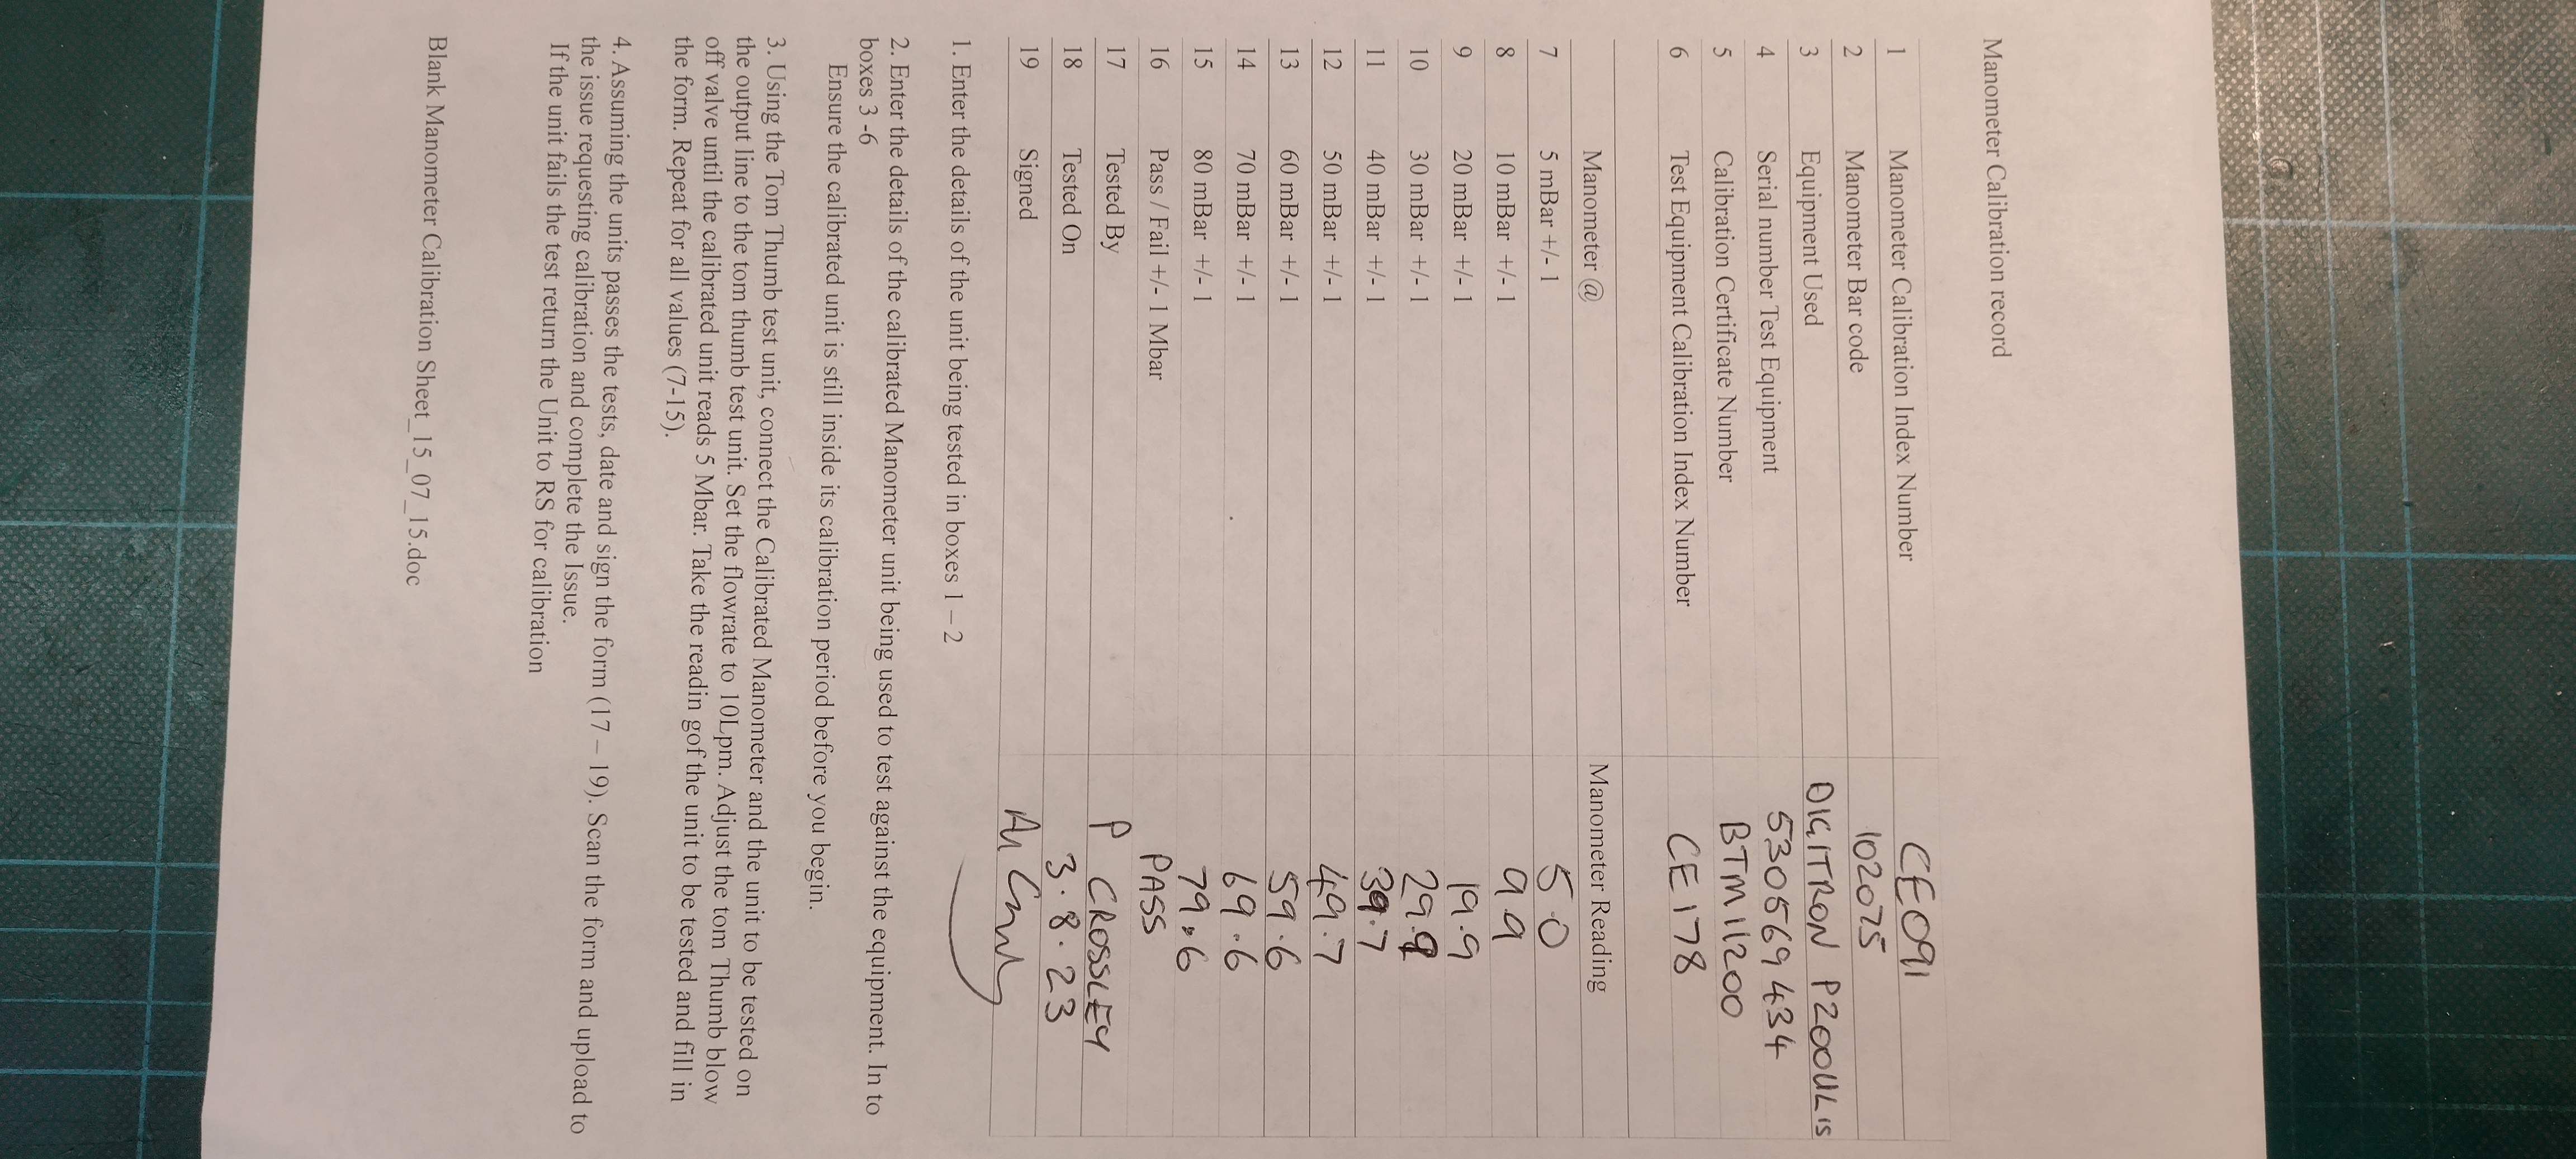 Manometer Calibration record
1 Manometer Calibration Index Number CE091
2 Manometer Bar code 102075
3 Equipment Used DIGITRON P200UL IS
4 Serial number Test Equipment 530569434
5 Calibration Certificate Number BTM11200
6 Test Equipment Calibration Index Number CE178
Manometer @ Manometer Reading
7 5 mBar +/- 1 5.0
8 10 mBar +/- 1 9.9
9 20 mBar +/- 1 19.9
10 30 mBar +/- 1 29.9
11 40 mBar +/- 1 39.7
12 50 mBar +/- 1 49.7
13 60 mBar +/- 1 59.6
14 70 mBar +/- 1 69.6
15 80 mBar +/- 1 79.6
16 Pass / Fail +/- 1 Mbar PASS
17 Tested By P CROSSLEY
18 Tested On 3.8.23
19 Signed
1. Enter the details of the unit being tested in boxes 1 – 2
2. Enter the details of the calibrated Manometer unit being used to test against the equipment. In to
boxes 3 -6
Ensure the calibrated unit is still inside its calibration period before you begin.
3. Using the Tom Thumb test unit, connect the Calibrated Manometer and the unit to be tested on
the output line to the tom thumb test unit. Set the flowrate to 10Lpm. Adjust the tom Thumb blow
off valve until the calibrated unit reads 5 Mbar. Take the readin gof the unit to be tested and fill in
the form. Repeat for all values (7-15).
4. Assuming the units passes the tests, date and sign the form (17 – 19). Scan the form and upload to
the issue requesting calibration and complete the Issue.
If the unit fails the test return the Unit to RS for calibration
Blank Manometer Calibration Sheet_15_07_15.doc